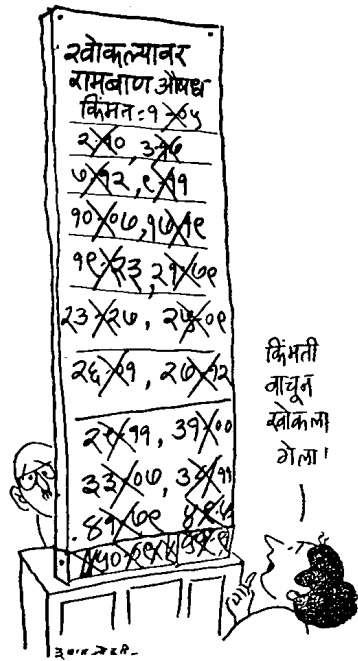 खोकल्यावर
रामबाण औषध
किंमत : १-०५
२-१०, ३-१७
७-१२, ९-११
१०-०७, १७-१९
१९-२३, २१-७९
२३-२७, २५-०९
२६-०१, २७-१२
२९-११, ३१-००
३३-०७, ३९-११
४१-७९
किंमती
वाचून
खोकला
गेला!